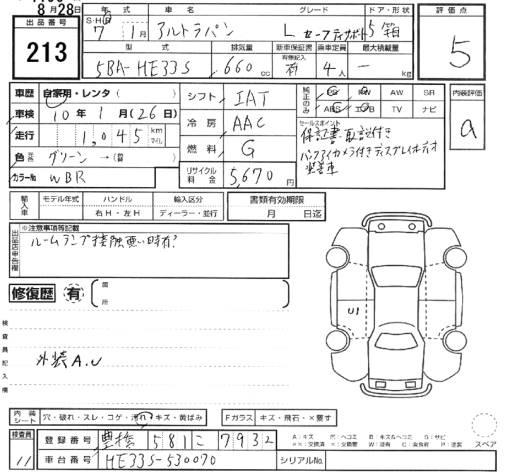 8月28日
出品番号
213
年式 車名 グレード ドア・形状
S・H
7年 1月 アルトラパン L セーフティサポート 5 箱
型式 排気量 新車保証書 乗車定員 最大積載量
5BA-HE33S 660cc 有 4人 — kg
評価点
5
車歴 自家用・レンタ( )
車検 10年1月(26日)
走行 1,045 km マイル
色 元色 グリーン→(替 )
カラーNo WBR
シフト IAT
冷房 AAC
燃料 G
リサイクル料金 5,670円
純正のみ
PS PW AW SR
ABS エアB TV ナビ
セールスポイント
保証書・取説付き
バックアイカメラ付きディスプレイオーディオ
装着車
内装評価
a
輸入車 モデル年式 ハンドル 輸入区分
右H・左H ディーラー・並行
書類有効期限
月 日迄
出品店申告欄
※注意事項等記載
ルームランプ接触悪い時有?
修復歴 有 箇所
U1
検査員記入欄
外装A.U
内装シート 穴・破れ・スレ・コゲ・汚れ・キズ・黄ばみ
Fガラス キズ・飛石・×要す
検査員
11
登録番号 豊橋 581 こ 7932
車台番号 HE33S-530070
シリアルNo.
スペア